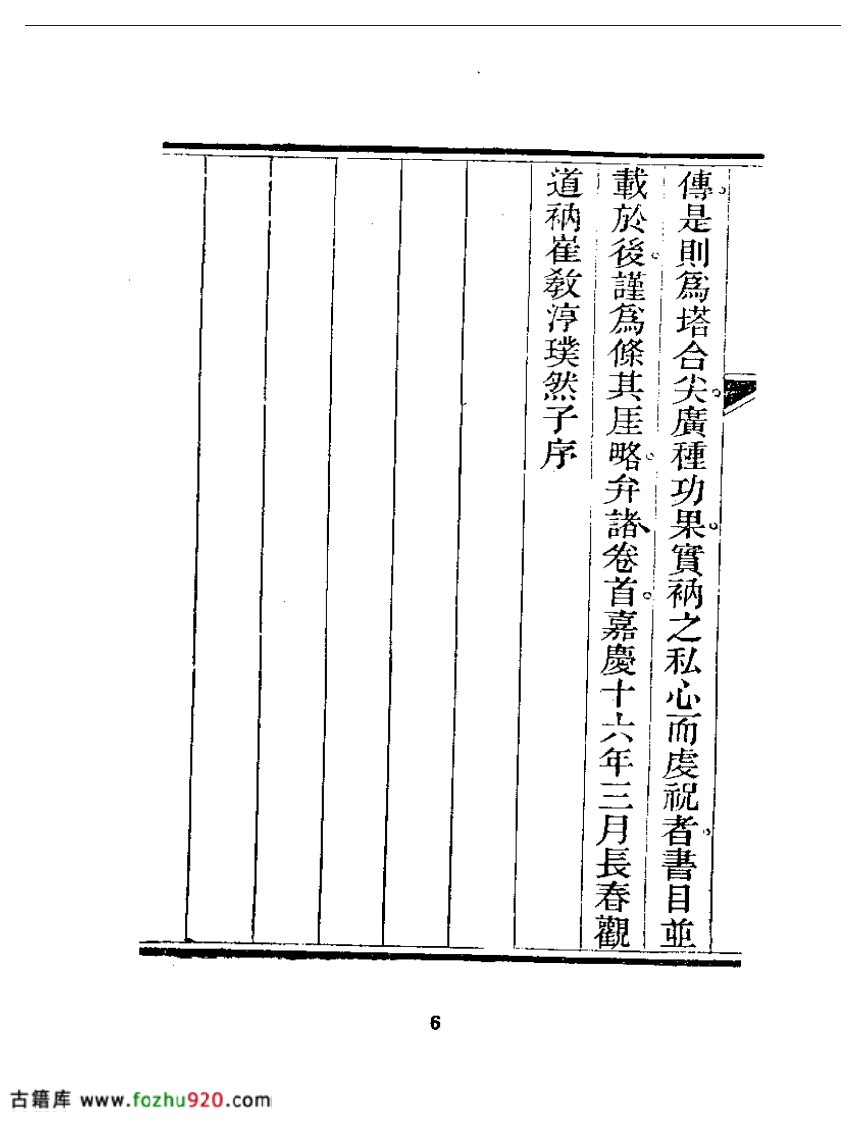 傳。是則爲塔合尖。廣種功果。實衲之私心而虔祝者。書目並
載於後。謹爲條其厓略。弁諸卷首。嘉慶十六年三月長春觀
道衲崔敎淳璞然子序
6
古籍库 www.fozhu920.com